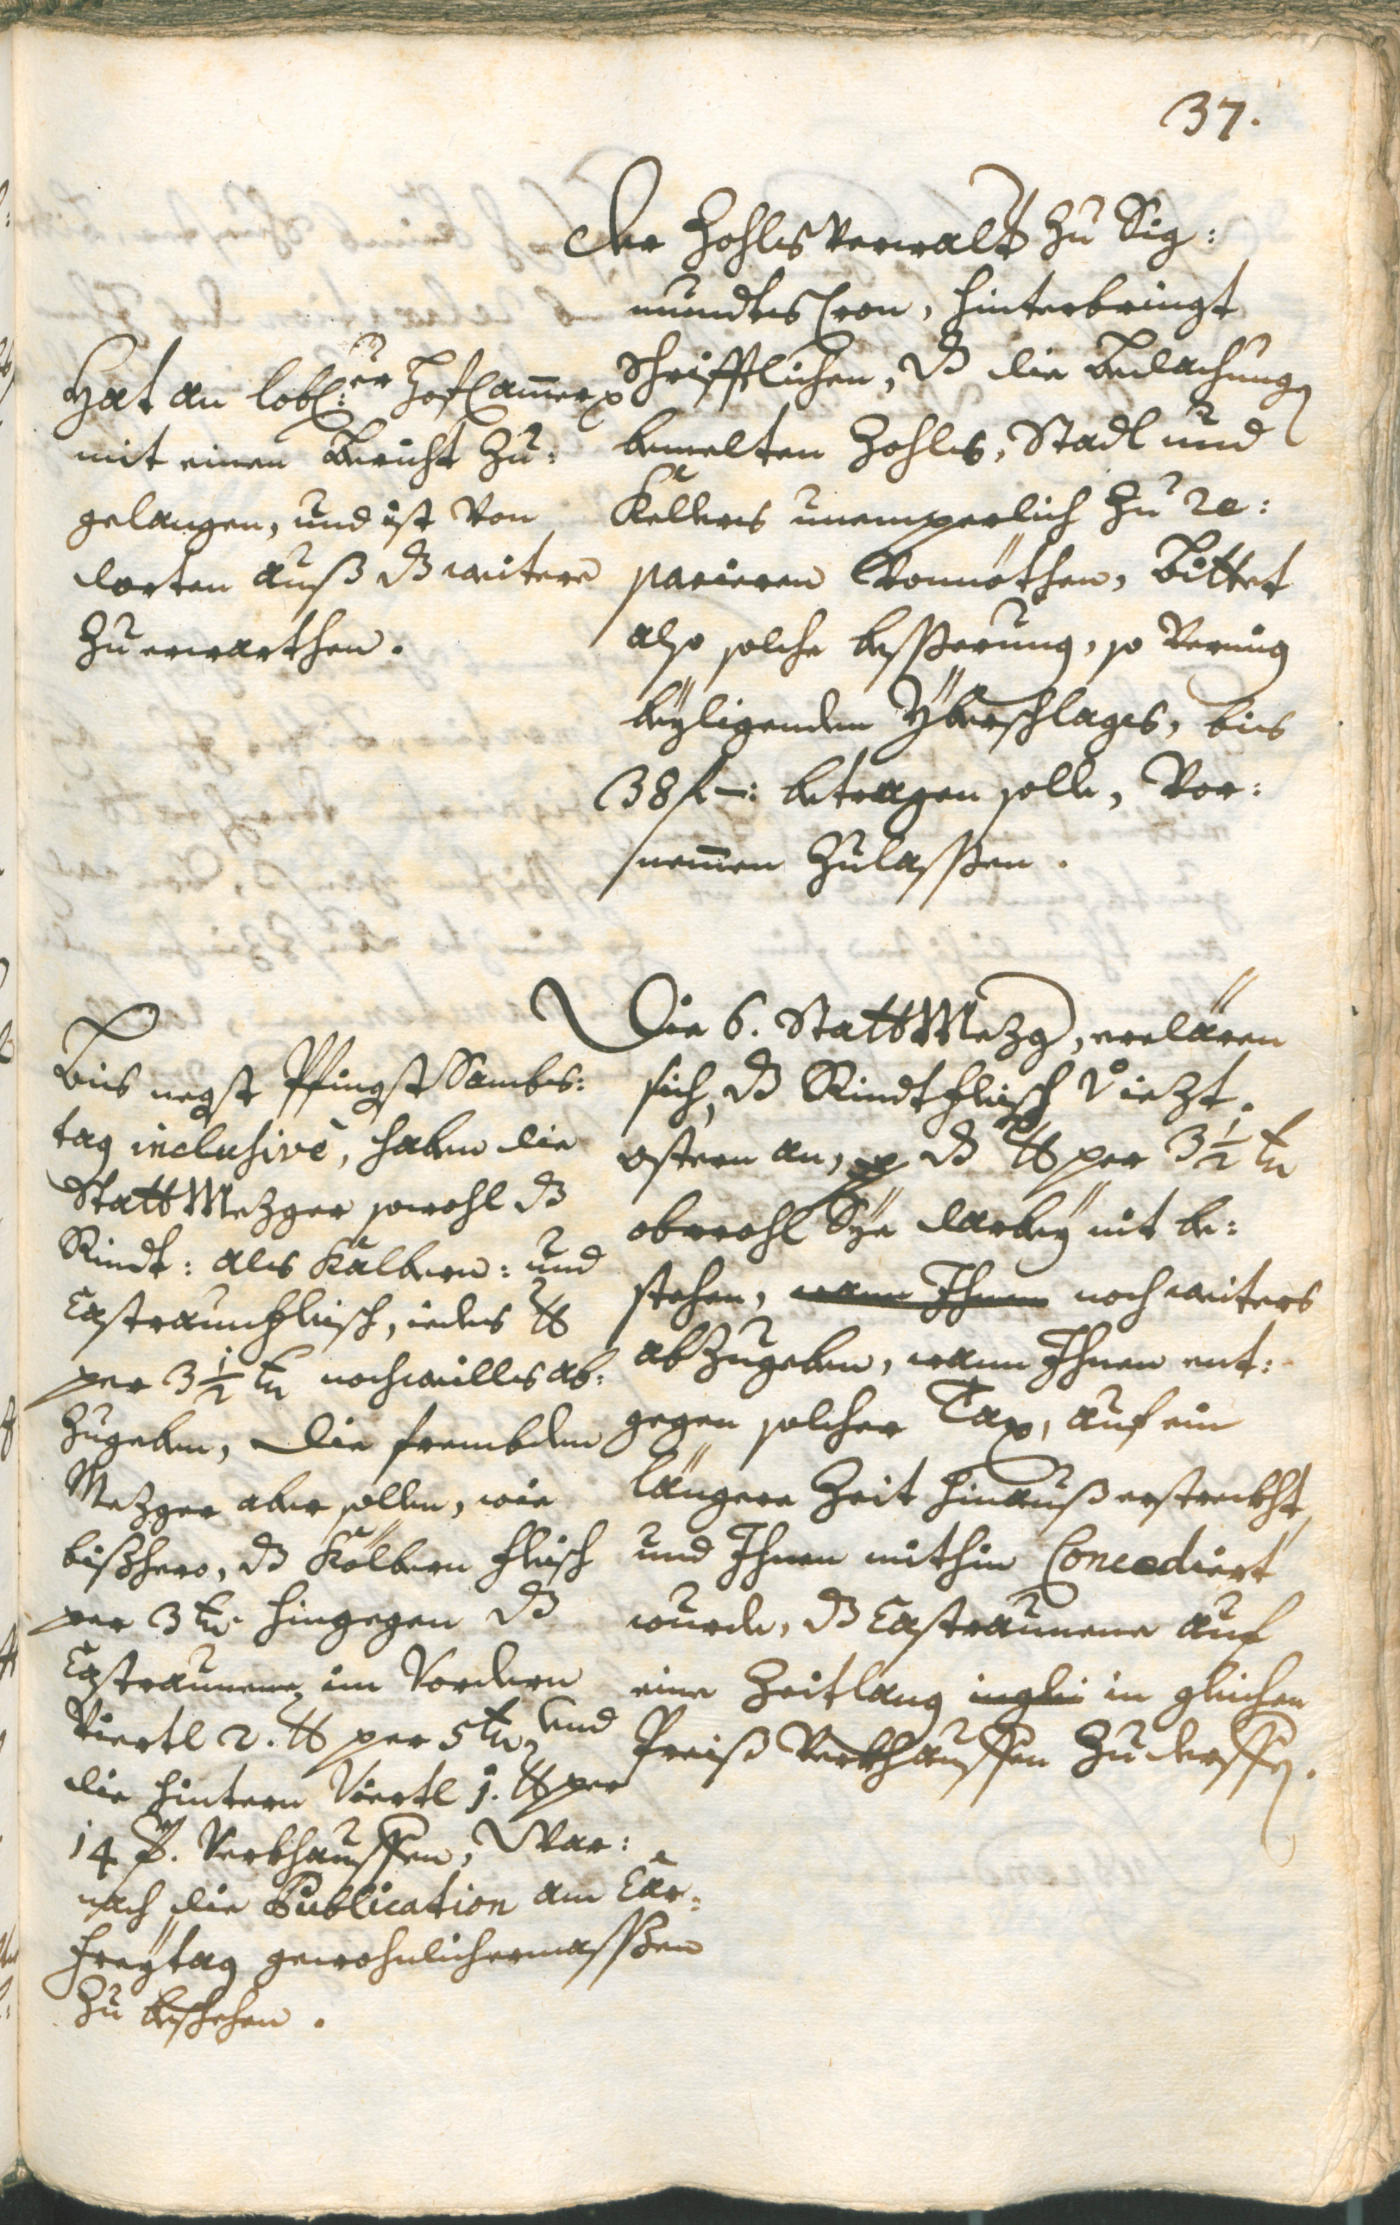 37.
Der Zohls Verwalt zu Sig:
mundts Cron, hinterbringt
Schrifftlichen, dß die Bedachung
bemelten Zohls, Stadl und
Kellers unemperlich zu re:
parieren Vonnöthen, Bittet
also solche besßerung, so Vermög
beÿligenden Yberschlages, bis
38 f –: betragen solle, Vor:
nem̄en zulasßen.
Hat an lobl:er HofCam̄er
mit einen Bericht zu:
gelangen, und ist Von
dorten auß dß weitere
zu erwarthen.
Die 6. StattMezg, erclären
sich, dß Rindtfleisch V iezt.
ostern an, dß ℔ per 3½ kr
obwohl Sÿe darbeÿ nit be:
stehen, wann Ihnen noch weiters
abzugeben, wann Ihnen ent:
gegen solcher Tax, auf ein
längere Zeit hinauß erstreckht
und Ihnen mithin Concediert
wurde, dß Castraunene auf
eine Zeitlang in gleichen
Preiß Verkhauffen zu derffen.
Bis negst Pfingst Sambs:
tag inclusivè, haben die
StattMezger sowohl dß
Rindt: als Kälbern: und
Castraunfleisch, iedes ℔
per 3½ kr nochmalls ab:
zugeben, die frembden
Mezger aber sollen, wie
bißhero, dß Kölbern fleisch
per 3 kr. hingegen dß
Castraunene im Vordern
Viertl 2. ℔ per 5 kr, und
die hintern Viertl 1. ℔ per
14 ₰. Verkhauffen, War:
nach die Publication am Car:
freÿtag gewohnlichermasßen
zu beschehen.